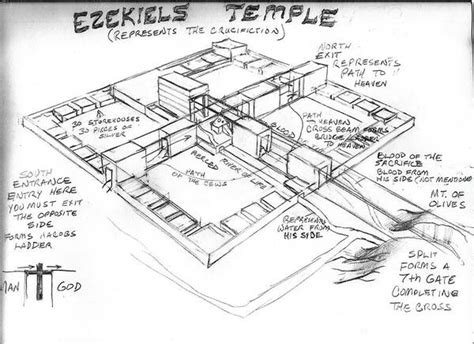 EZEKIELS TEMPLE
(REPRESENTS THE CRUCIFICTION)
NORTH
EXIT
REPRESENTS
PATH TO
HEAVEN
30 STOREHOUSES
30 PIECES OF
SILVER
BLOOD
PATH
HEAVEN
CROSS BEAM FORMS
BRIDGE
PIERCED
RIVER OF LIFE
PATH
OF THE JEWS
BLOOD OF THE
SACRIFICE
BLOOD FROM
HIS SIDE (NOT
MT. OF
OLIVES
SOUTH
ENTRANCE
ENTRY HERE
YOU MUST EXIT
THE OPPOSITE
SIDE
FORMS JACOBS
LADDER
REPRESENTS
WATER FROM
HIS SIDE
SPLIT
FORMS A
7TH GATE
COMPLETING
THE CROSS
MAN
GOD